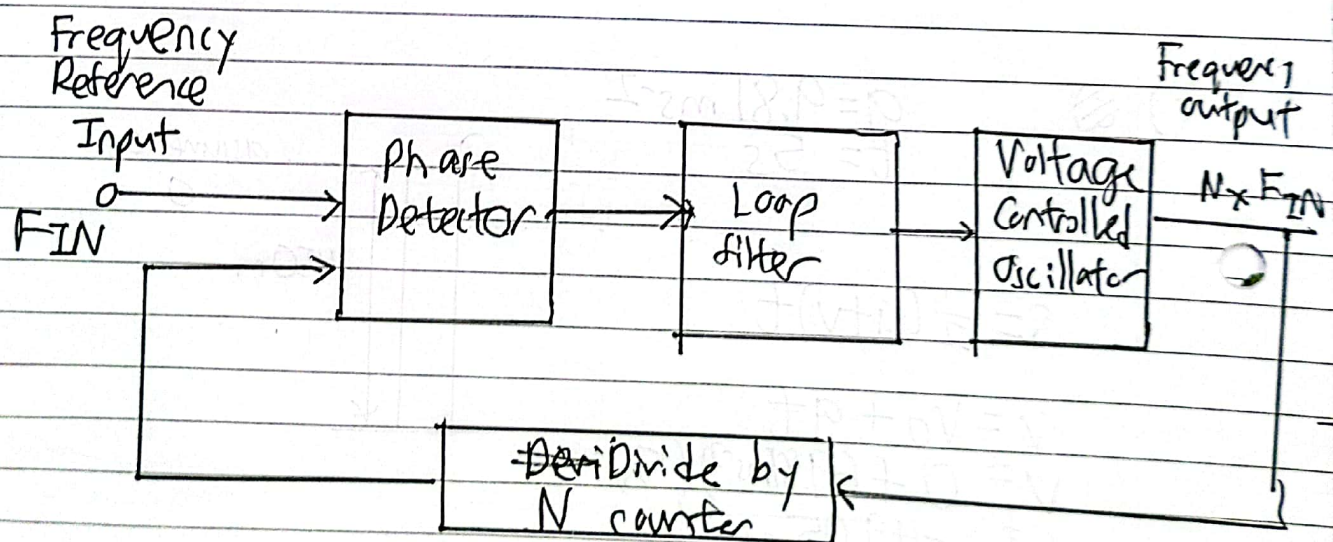 Frequency
Reference
Input
FIN
Phase
Detector
Loop
filter
Voltage
Controlled
Oscillator
Frequency
output
N x FIN
Divide by
N counter
a = 9.81 ms²